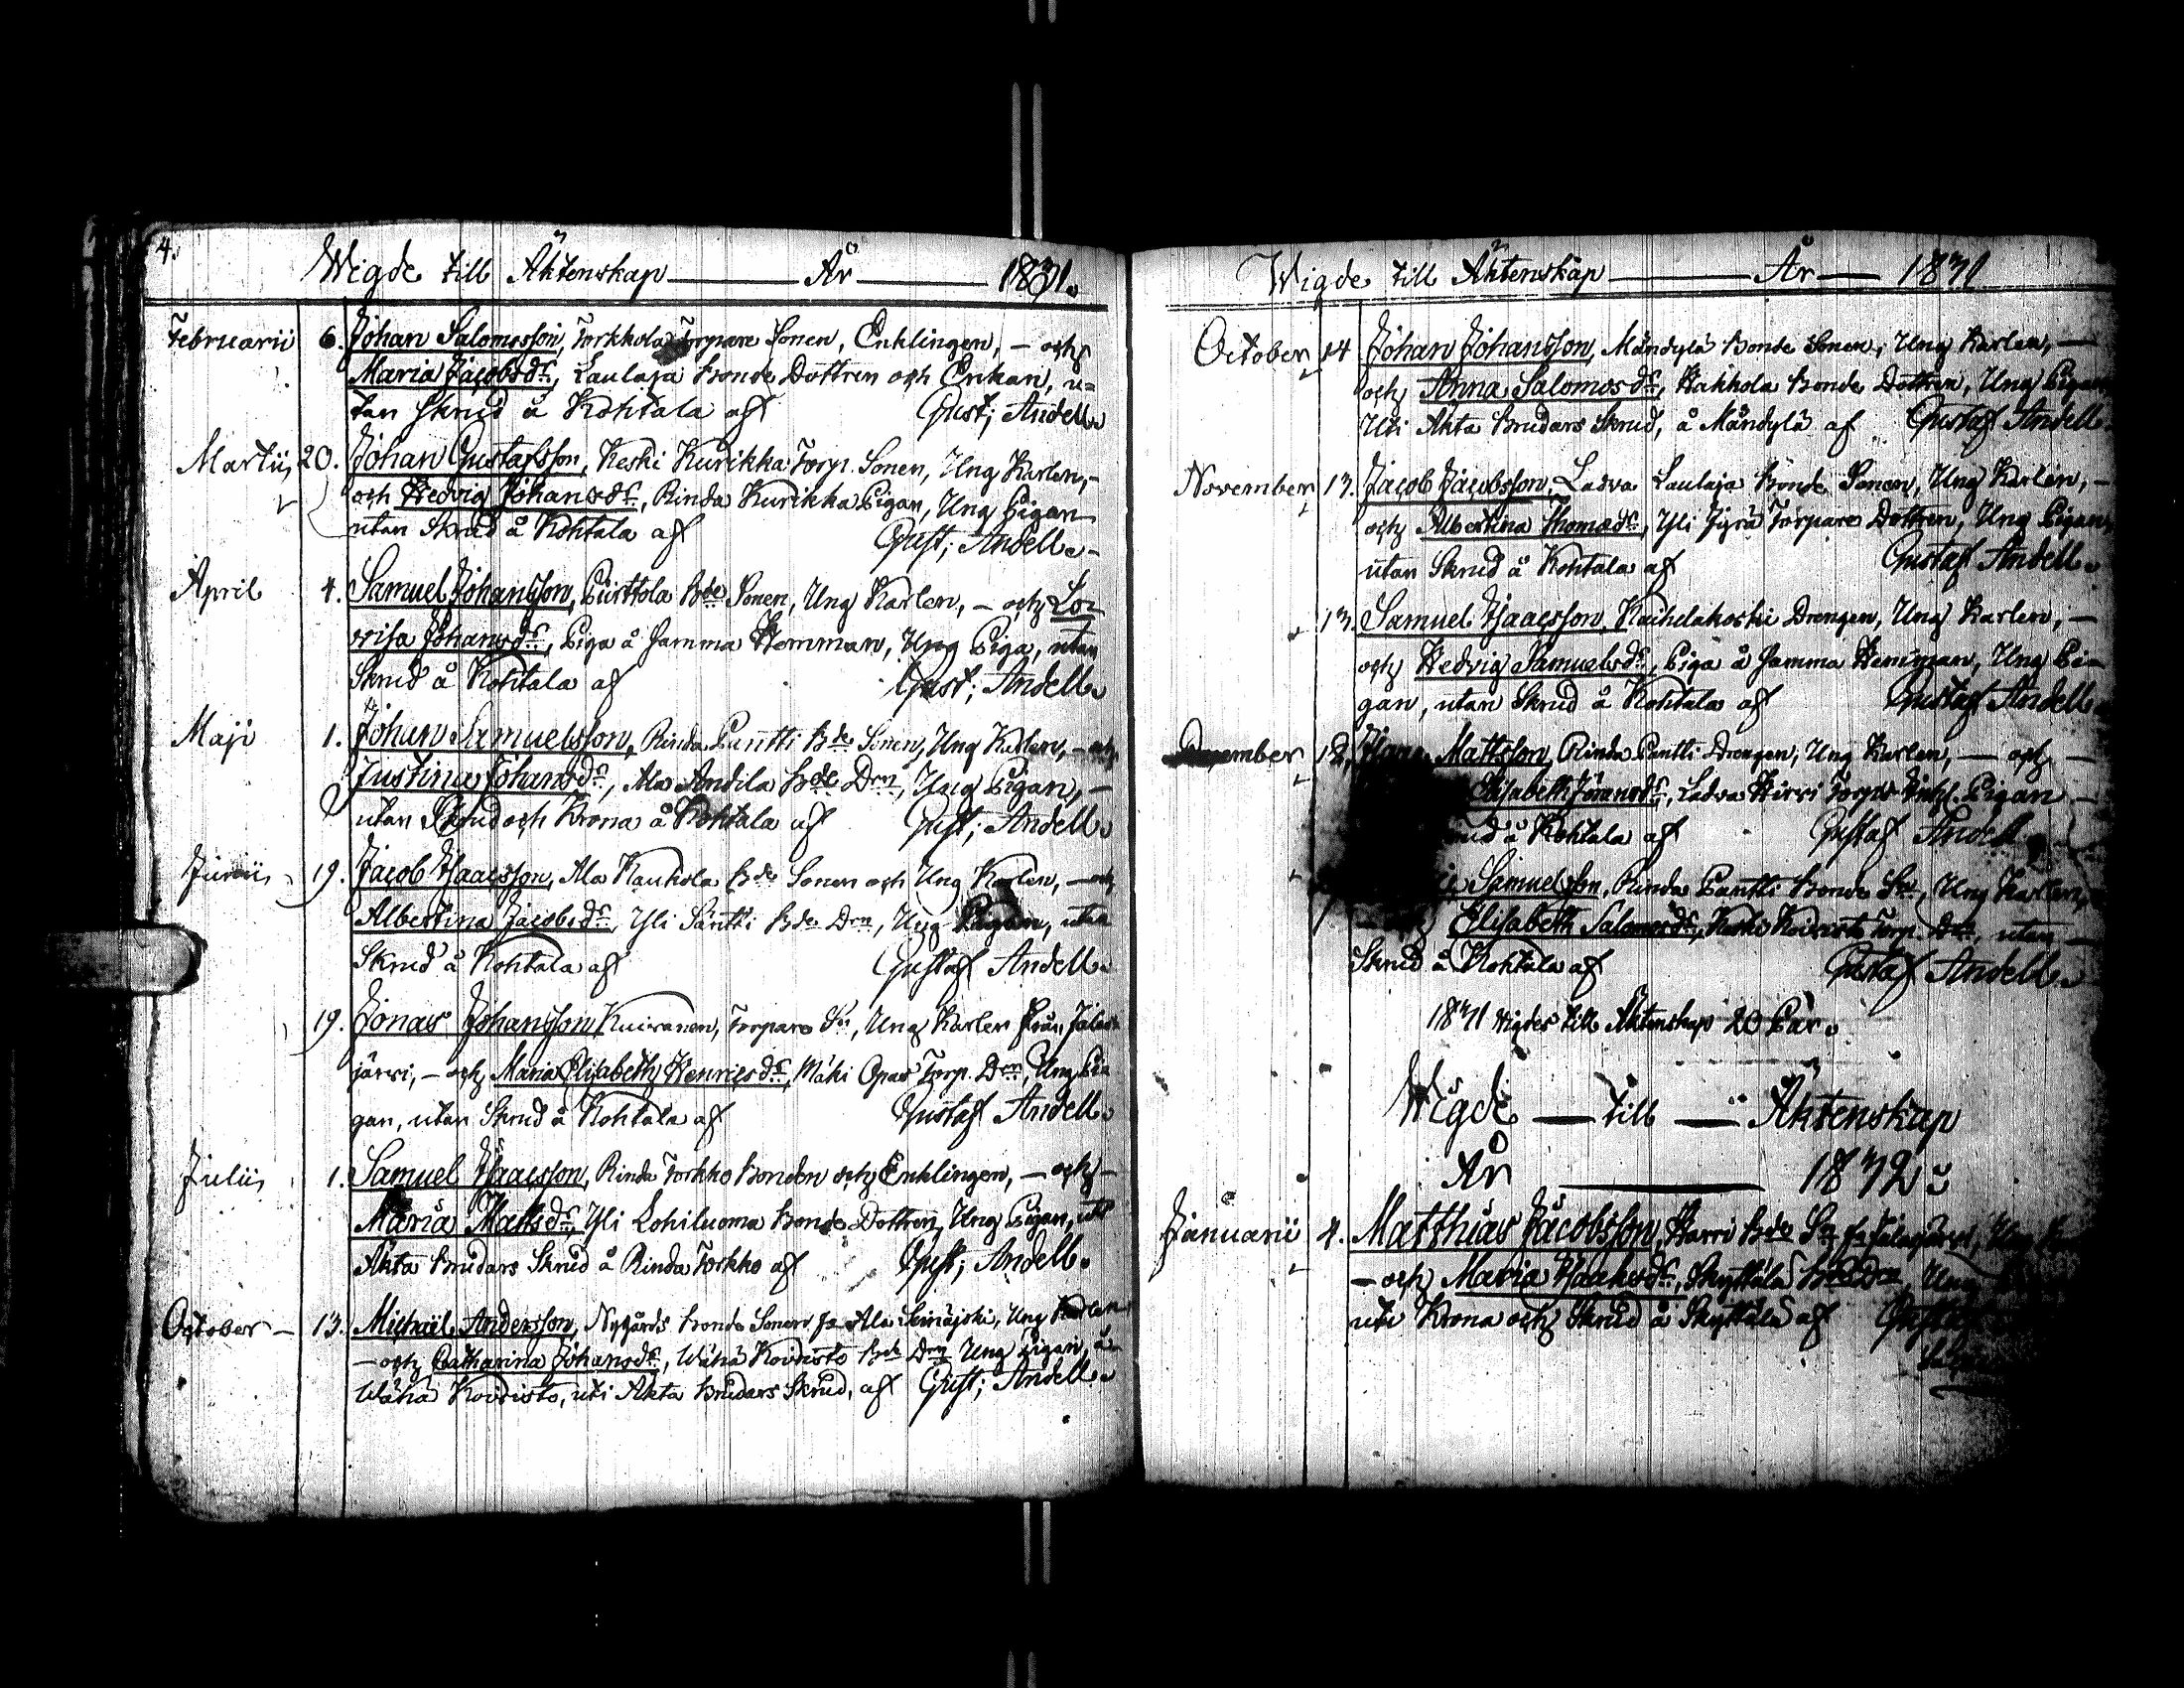 4.
Wigde till Äktenskap — År — 1831.
Februarii 6. Johan Salomosson, Torkkola Torpare Sonen, Enklingen, — och
Maria Jacobsdr, Laulaja Bonde Dottren och Enkan, u=
tan skrud å Kohtala af Gust; Andell.
Martii 20. Johan Gustafsson, Keski Kurikka Torp. Sonen, Ung Karlen, -
och Hedvig Johansdr, Rinda Kurikka Pigan, Ung Pigan
utan Skrud å Kohtala af Gust; Andell. -
April 4. Samuel Johansson, Purttola Bde Sonen, Ung Karlen, — och Lo-
visa Johansdr, Piga å samma Hemman, Ung Piga, utan
Skrud å Kohtala af Gust; Andell.
Maji 1. Johan Samuelsson, Rinda Panttti Bde Sonen, Ung Karlen, — och
Justina Johansdr, Ala Andila Bde Drn, Ung Pigan, —
utan Skrud och Krona å Kohtala af Gust; Andell.
Junii 19. Jacob Isaacsson, Ala Kauhola Bde Sonen och Ung Karlen, — och
Albertina Jacobsdr, Yli Säntti Bde Drn, Ung Pigan, utan
Skrud å Kohtala af Gustaf Andell.
19. Jonas Johansson Kuiranen, Torpare Sn, Ung Karlen från Jalas-
järvi, — och Maria Elisabeth Henricsdr, Mäki Opas Torp. Drn, Ung Pi-
gan, utan Skrud å Kohtala af Gustaf Andell.
Julii 1. Samuel Isaacsson, Rinda Torkko Bonden och Enklingen, — och —
Maria Matsdr, Yli Lohiluoma Bonde Dottren, Ung Pigan, uti
Äkta Brudars Skrud å Rinda Torkko af Gust; Andell.
October — 13. Michael Andersson, Nygårds Bonde Sonen fr Ala Seinäjoki, Ung Karlen
— och Catharina Johansdr, Wähä Koivisto Bde Drn Ung Pigan, å
Wähä Koivisto, uti Äkta Brudars Skrud, af Gust; Andell.
Wigde till Äktenskap — År — 1831
October 14 Johan Johansson, Mändylä Bonde Sonen, Ung Karlen, —
och Anna Salomosdr, Hakkola Bonde Dottren, Ung Pigan
Uti Äkta Brudars Skrud, å Mändylä af Gustaf Andell.
November 13. Jacob Jacobsson, Ladva Laulaja Bonde Sonen, Ung Karlen, —
och Albertina Thomædr, Yli Jyrä Torpare Dottren, Ung Pigan,
utan Skrud å Kohtala af Gustaf Andell.
13. Samuel Isaacsson, Kaihelakoski Drengen, Ung Karlen, —
och Hedvig Samuelsdr, Piga å samma Hemman, Ung Pi-
gan, utan Skrud å Kohtala af Gustaf Andell.
December 12. Mattsson, Rinda Pantti Drengen, Ung Karlen, — och —
Elisabeth Göransdr, Ladva Hirvi Pigan —
å Kohtala af Gustaf Andell.
Samuelsson, Rinda Pantti Bonde Sn, Ung Karlen,
Elisabeth Salomosdr, Keski Koivisto Torp. Drn, utan —
Skrud å Kohtala af Gustaf Andell.
1831 Wigdes till Äktenskap 20 Par.
Wigde — till — Äktenskap
År — 1832.
Januarii 4. Matthias Jacobsson, Harri Bde Sn fr Jalasjärvi, Ung
— och Maria Isaksdr, Skyttälä Bde Drn, Ung
uti Krona och Skrud å Skyttälä af